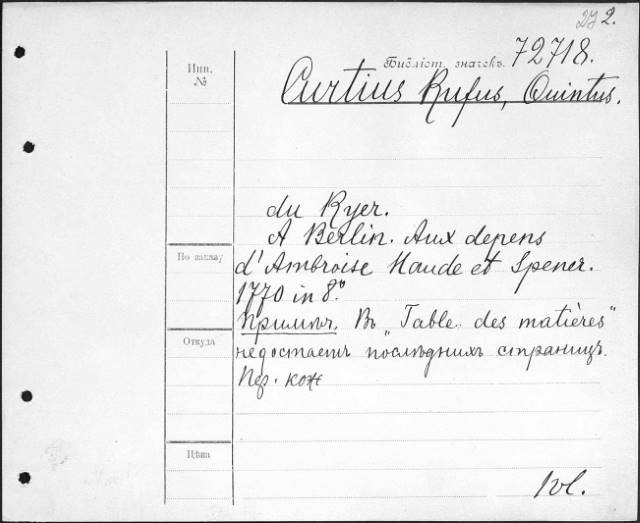 2.
Инв.
№
Библіот. значекъ. 72718.
Curtius Rufus, Quintus.
du Ryer.
A Berlin. Aux depens
По заказу
d'Ambroise Haude et Spener.
1770 in 8.°
Примѣч. Въ „Table des matières"
Откуда
недостаетъ послѣднихъ страницъ.
Пер. кож
Цѣна
1 vol.